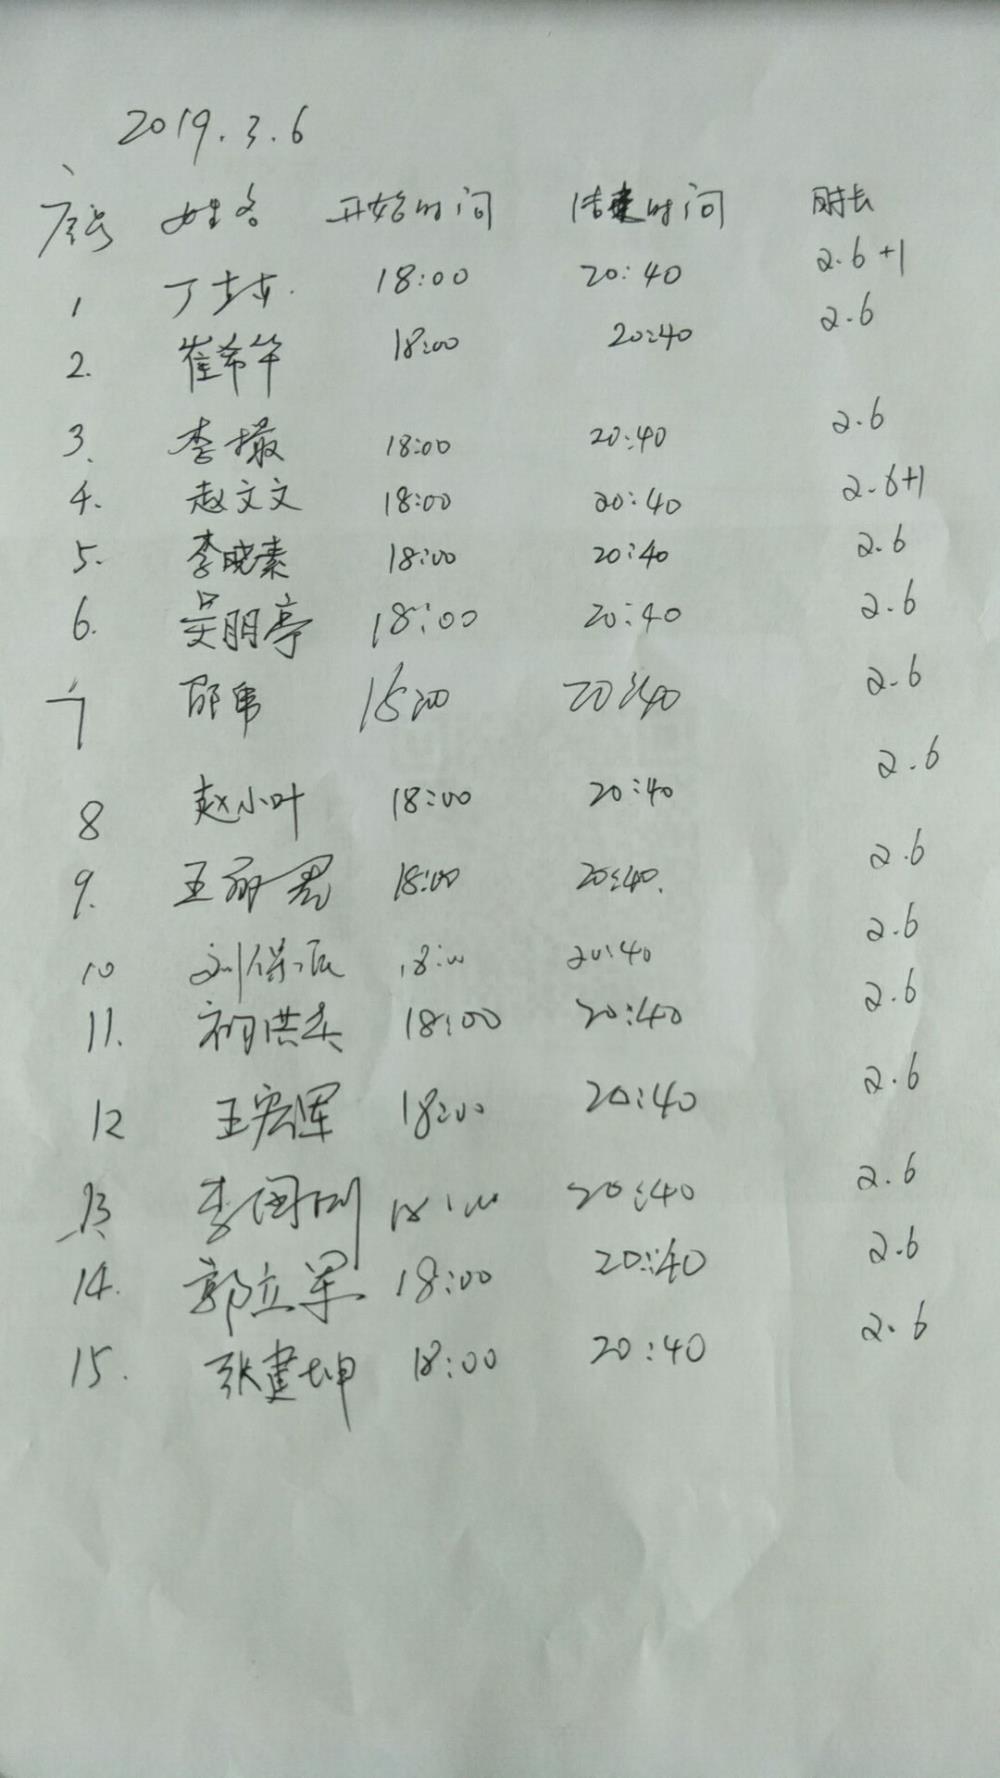 2019.3.6
序号 姓名 开始时间 结束时间 时长
1 丁 18:00 20:40 2.6+1
2. 崔希华 18:00 20:40 2.6
3. 李撮 18:00 20:40 2.6
4. 赵文文 18:00 20:40 2.6+1
5. 李晓素 18:00 20:40 2.6
6. 吴朋亭 18:00 20:40 2.6
7 邵伟 20:40 2.6
8 赵小叶 18:00 20:40 2.6
9. 王丽君 18:00 20:40. 2.6
10 刘保 18:00 20:40 2.6
11. 祁洪杰 18:00 20:40 2.6
12 王宏军 18:00 20:40 2.6
13 李国刚 18:00 20:40 2.6
14. 郭立军 18:00 20:40 2.6
15. 张建坤 18:00 20:40 2.6